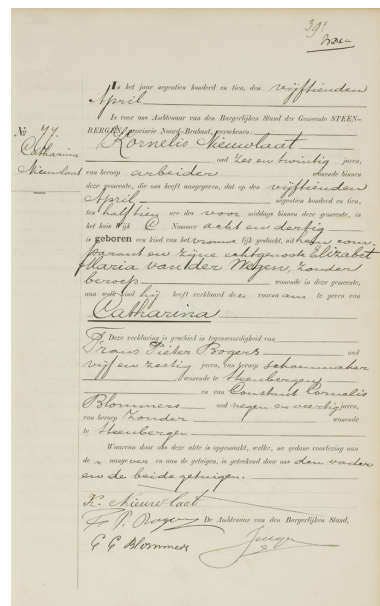 391
In het jaar negentien honderd en tien, den vijftienden
April
is voor ons Ambtenaar van den Burgerlijken Stand der Gemeente STEEN-
BERGEN, Provincie Noord-Brabant, verschenen:
No 77.
Catharina
Nieuwlaat
Kornelis Nieuwlaat
oud zes en twintig jaren,
van beroep arbeider wonende binnen
deze gemeente, die ons heeft aangegeven, dat op den vijftienden
April negentien honderd en tien,
ten half tien ure des voor middags binnen deze gemeente, in
het huis Wijk C Nommer acht en dertig
is geboren een kind van het vrouwelijk geslacht, uit hem com-
parant en zijne echtgenoote Elizabet
Maria van der Wegen, zonder
beroep wonende in deze gemeente,
aan welk kind hij heeft verklaard den voornaam te geven van
Catharina
Deze verklaring is geschied in tegenwoordigheid van
Frans Pieter Bogers oud
vijf en zestig jaren, van beroep schoenmaker
wonende te Steenbergen
en van Constant Cornelis
Blommers oud negen en veertig jaren,
van beroep zonder wonende
te Steenbergen
Waarvan door ons deze akte is opgemaakt, welke, na gedane voorlezing aan
de aangever en aan de getuigen, is geteekend door ons den vader
en de beide getuigen.
K. Nieuwlaat
F. P. Bogers
De Ambtenaar van den Burgerlijken Stand,
C C Blommers